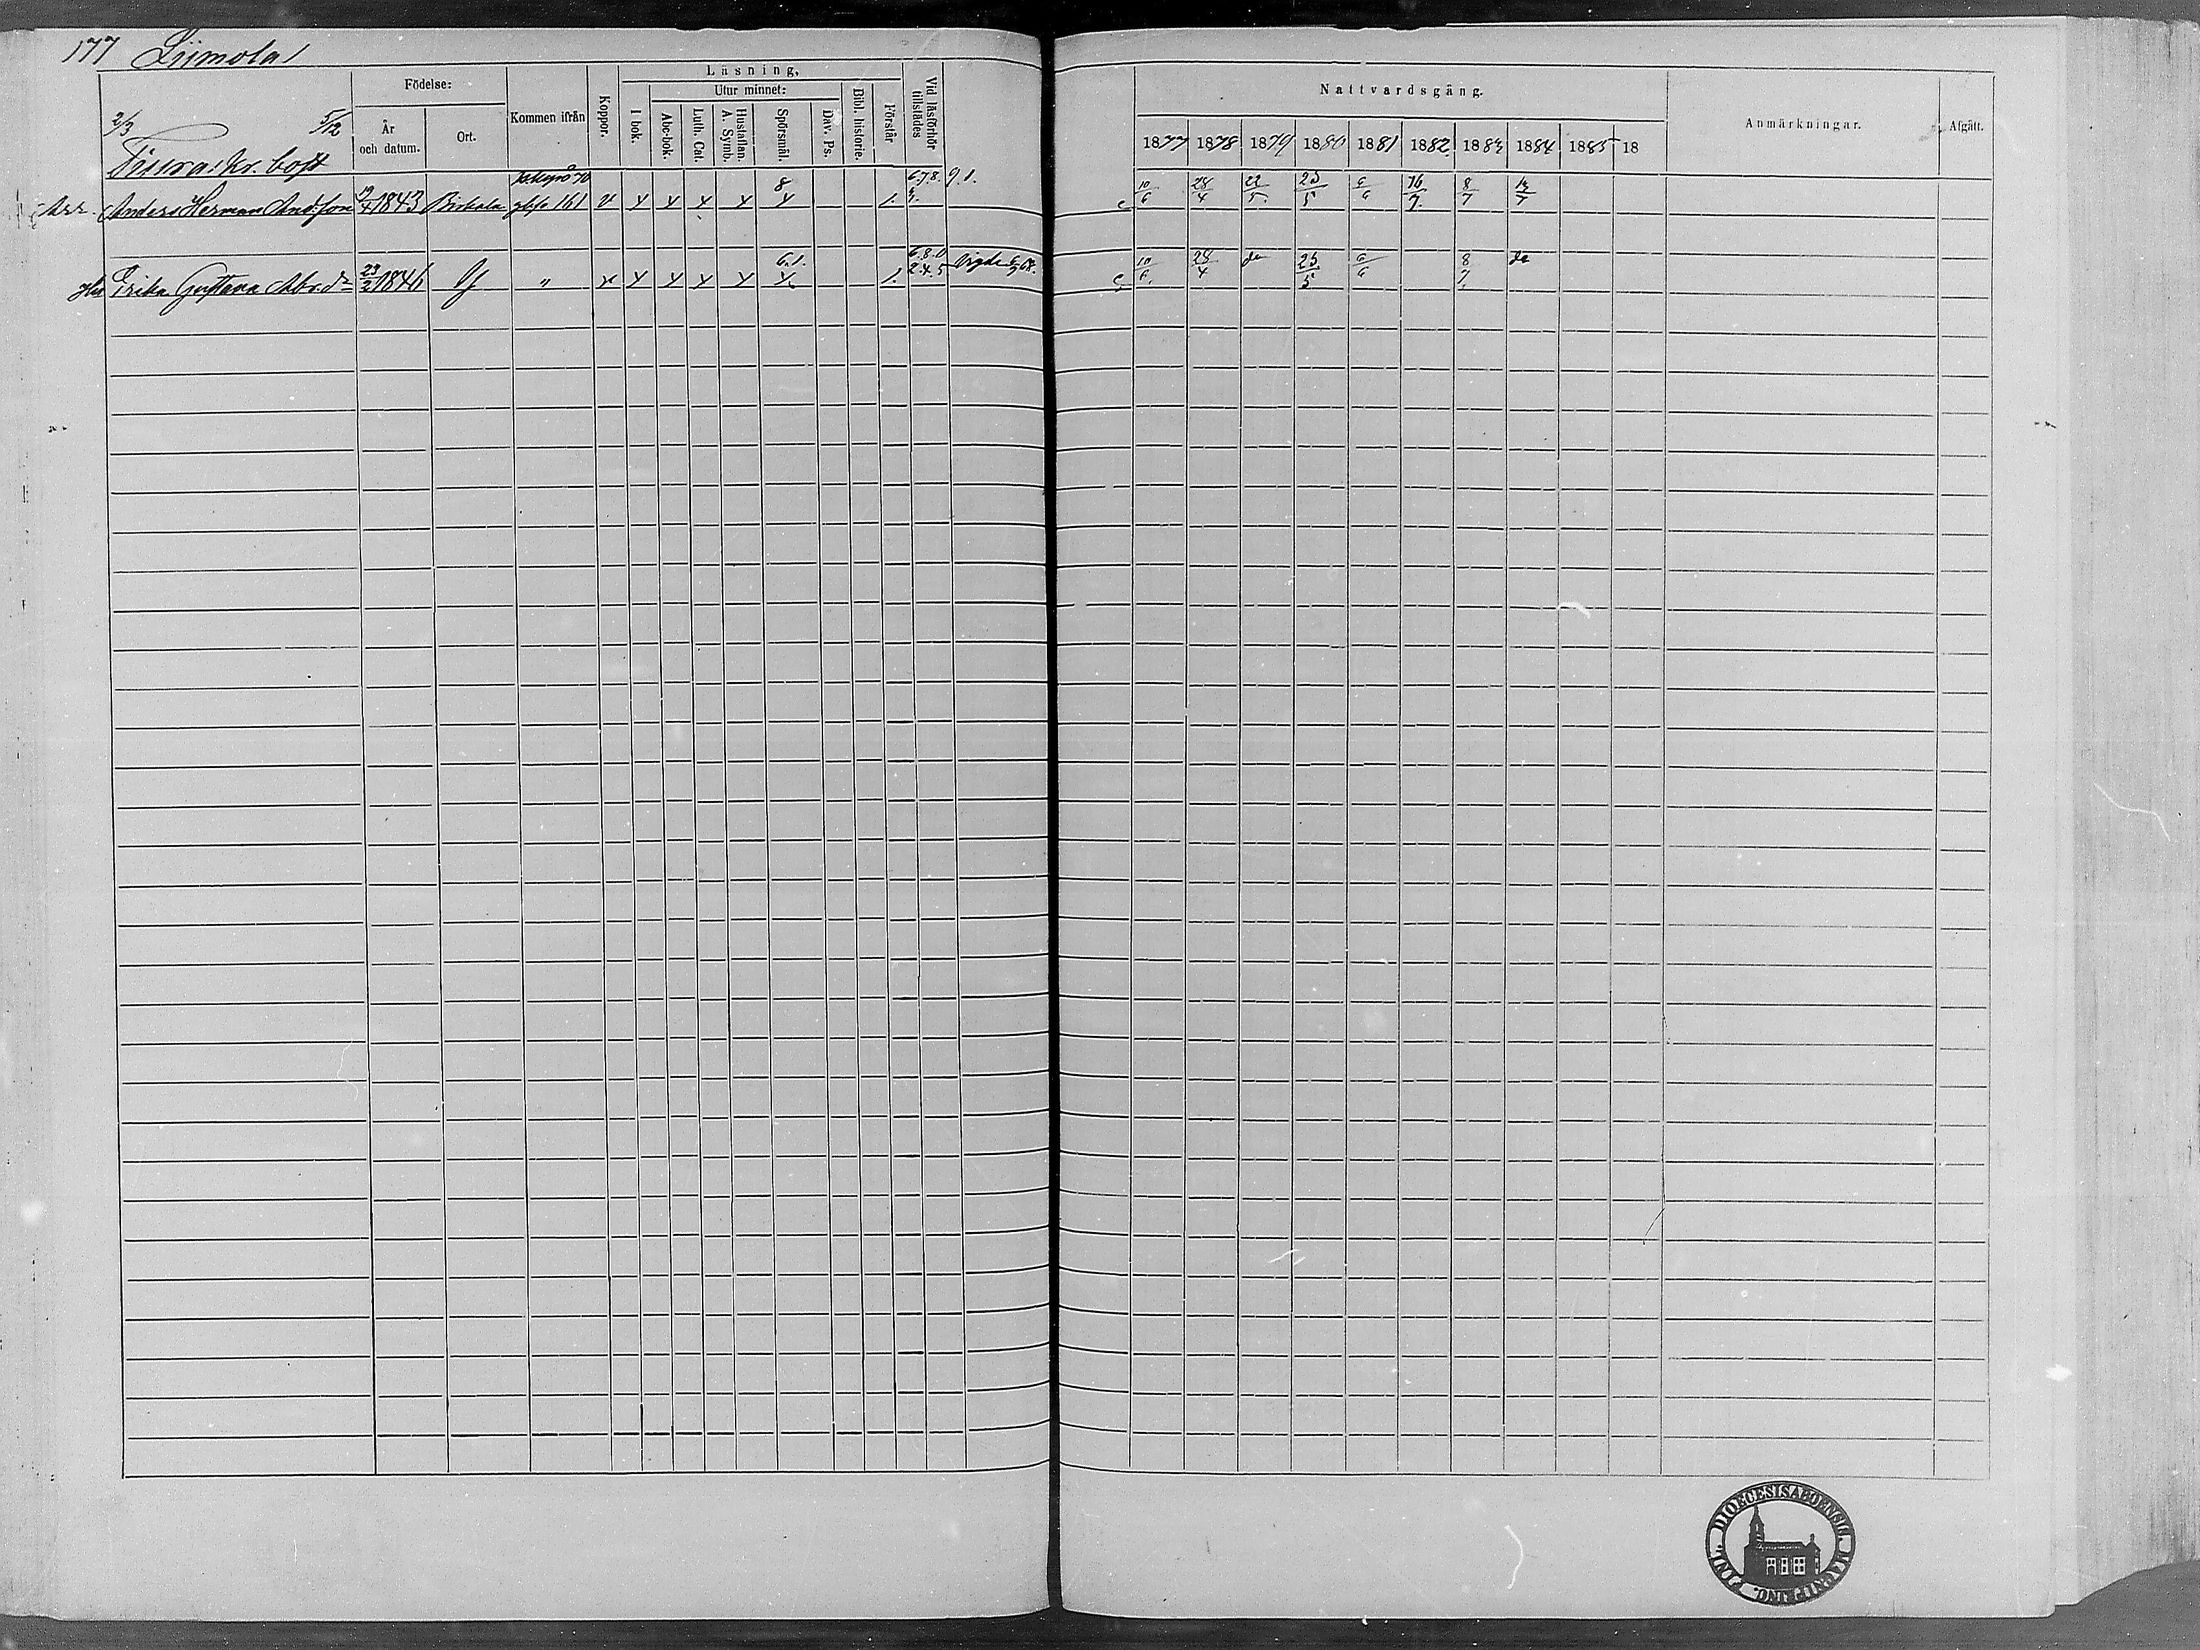 177 Liimola
Födelse:
Kommen ifrån
Koppor.
Läsning,
Utur minnet:
I bok.
Abc-bok.
Luth. Cat.
Hustaflan.
A. Symb.
Spörsmål.
Dav. Ps.
Bibl. historie.
Förstår
Vid läsförhör tillstädes
År och datum.
Ort.
Nattvardsgång.
1877 1878 1879 1880 1881 1882 1883 1884 1885 18
Anmärkningar.
Afgått.
2/3 5/12
6.7.8. 9.1.
Anders Herman And:son 19/4 1843 Birkala 161 v x x x x 8 x 1. 10/6 28/4 22/5 25/5 6/6 16/7 8/7 13/7
Erika Gustava Abr.dr 23/2 1846 " v x x x x 6.1. x 1. 6.8.0 2.4.5 Vigde 10/6 28/4 do 25/5 6/6 8/7 do
DIOECESIS ABOENSIS MAGNI DUC. FINL.